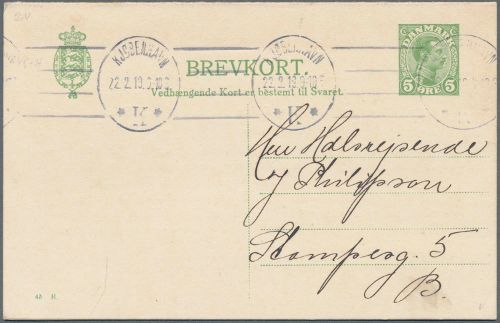 KJØBENHAVN
22.2.19.9-10 F
* K *
KJØBENHAVN
22.2.19.9-10 F
* K *
DANMARK
5 ØRE 5
BREVKORT.
Vedhængende Kort er bestemt til Svaret.
Herr
Philipson
Stampesg. 5
B.
43 H.